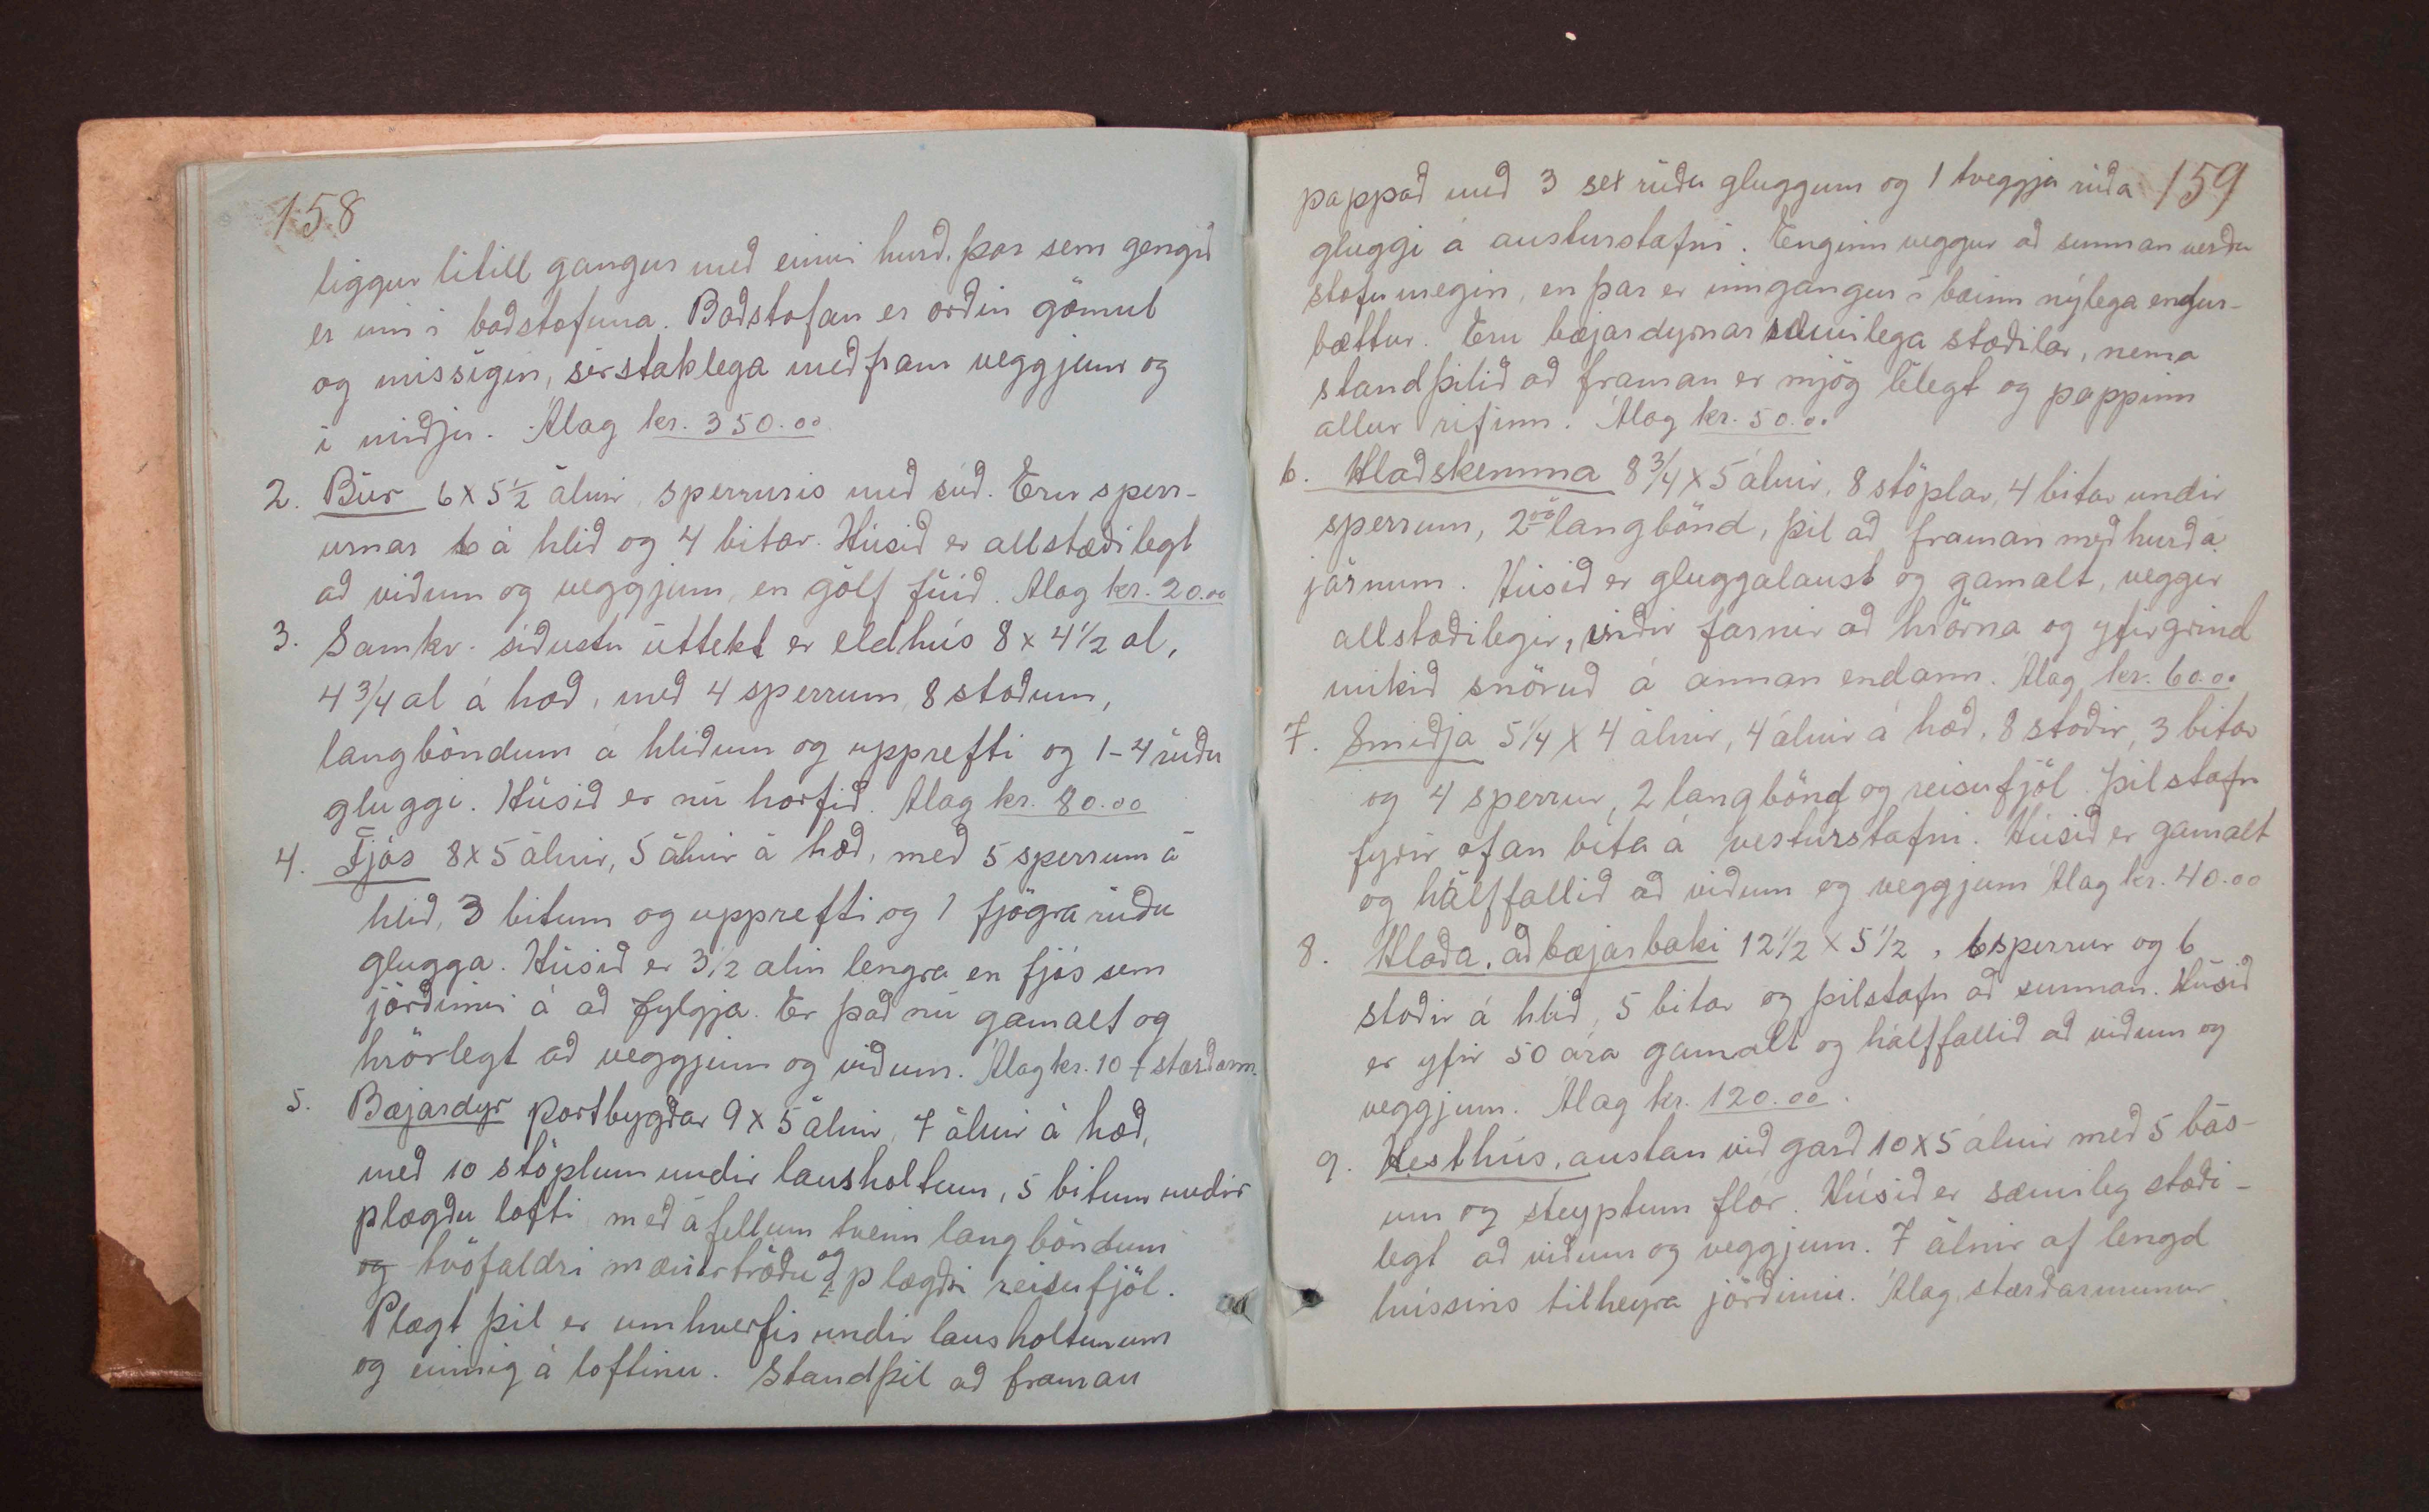 158
liggur lítill gangur með einni hurð, þar sem gengið
er inn í baðstofuna. Baðstofan er orðin gömul
og missigin, sérstaklega meðfram veggjum og
í miðju. Álag kr. 350.00
2. Búr 6 x 5 1/2 álnir, sperruris með súð. Eru sperr-
urnar 6 á hlið og 4 bitar. Húsið er allstæðilegt
að viðum og veggjum, en gólf fúið. Álag kr. 20.00
3. Samkv. síðustu úttekt er eldhús 8 x 4 1/2 al,
4 3/4 al á hæð, með 4 sperrum, 8 stoðum,
langböndum á hliðum og upprefti og 1-4 rúðu
gluggi. Húsið er nú horfið. Álag kr. 80.00
4. Fjós 8 x 5 álnir, 5 álnir á hæð, með 5 sperrum á
hlið, 3 bitum og upprefti og 1 fjögra rúðu
glugga. Húsið er 3 1/2 alin lengra en fjós sem
jörðinni á að fylgja. Er það nú gamalt og
hrörlegt að veggjum og viðum. Álag kr. 10 + stærðarm.
5. Bæjardyr portbygðar 9 x 5 álnir, 7 álnir á hæð,
með 10 stöplum undir lausholtum, 5 bitum undir
plægðu lofti með áfellum tveim langböndum
og tvöfaldri mænitróðu og plægðri reisufjöl.
Plægt þil er umhverfis undir lausholtunum
og einnig á loftinu. Standþil að framan
159
pappað með 3 sex rúðu gluggum og 1 tveggja rúða
gluggi á austurstafni. Enginn veggur að sunnan verðu
stofumegin, en þar er inngangur í bæinn nýlega endur-
bættur. Eru bæjardyrnar sæmilega stæðilar, nema
standþilið að framan er mjög lélegt og pappinn
allur rifinn. Álag kr. 50.00
6. Hlaðskemma 8 3/4 x 5 álnir, 8 stöplar, 4 bitar undir
sperrum, 2öö langbönd, þil að framan með hurð á
járnum. Húsið er gluggalaust og gamalt, veggir
allstæðilegir, viðir farnir að hrörna og yfirgrind
mikið snöruð á annan endann. Álag kr. 60.00
7. Smiðja 5 1/4 x 4 álnir, 4 álnir á hæð, 8 stoðir, 3 bitar
og 4 sperrur, 2 langbönd og reisufjöl. Þilstafn
fyrir ofan bita á vesturstafni. Húsið er gamalt
og hálffallið að viðum og veggjum Álag kr. 40.00
8. Hlaða, að bæjarbaki 12 1/2 x 5 1/2, 6 sperrur og 6
stoðir á hlið, 5 bitar og þilstafn að sunnan. Húsið
er yfir 50 ára gamalt og hálffallið að viðum og
veggjum. Álag kr. 120.00.
9. Hesthús, austan við garð 10 x 5 álnir með 5 bás-
um og steyptum flór. Húsið er sæmileg stæði-
legt að viðum og veggjum. 7 álnir af lengd
hússins tilheyra jörðinni. Álag, stærðarmunur